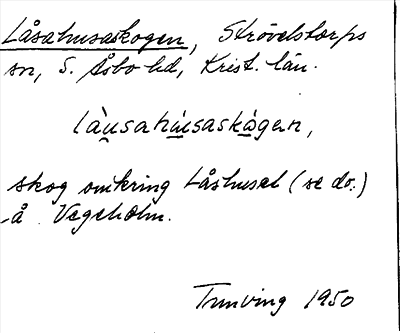 Låsahusaskogen, Strövelstorps
sn, S. Åsbo hd, Krist. län.
làusahúsaskògan,
skog omkring Låshuset (se do.)
å Vegeholm.
Tunving 1950